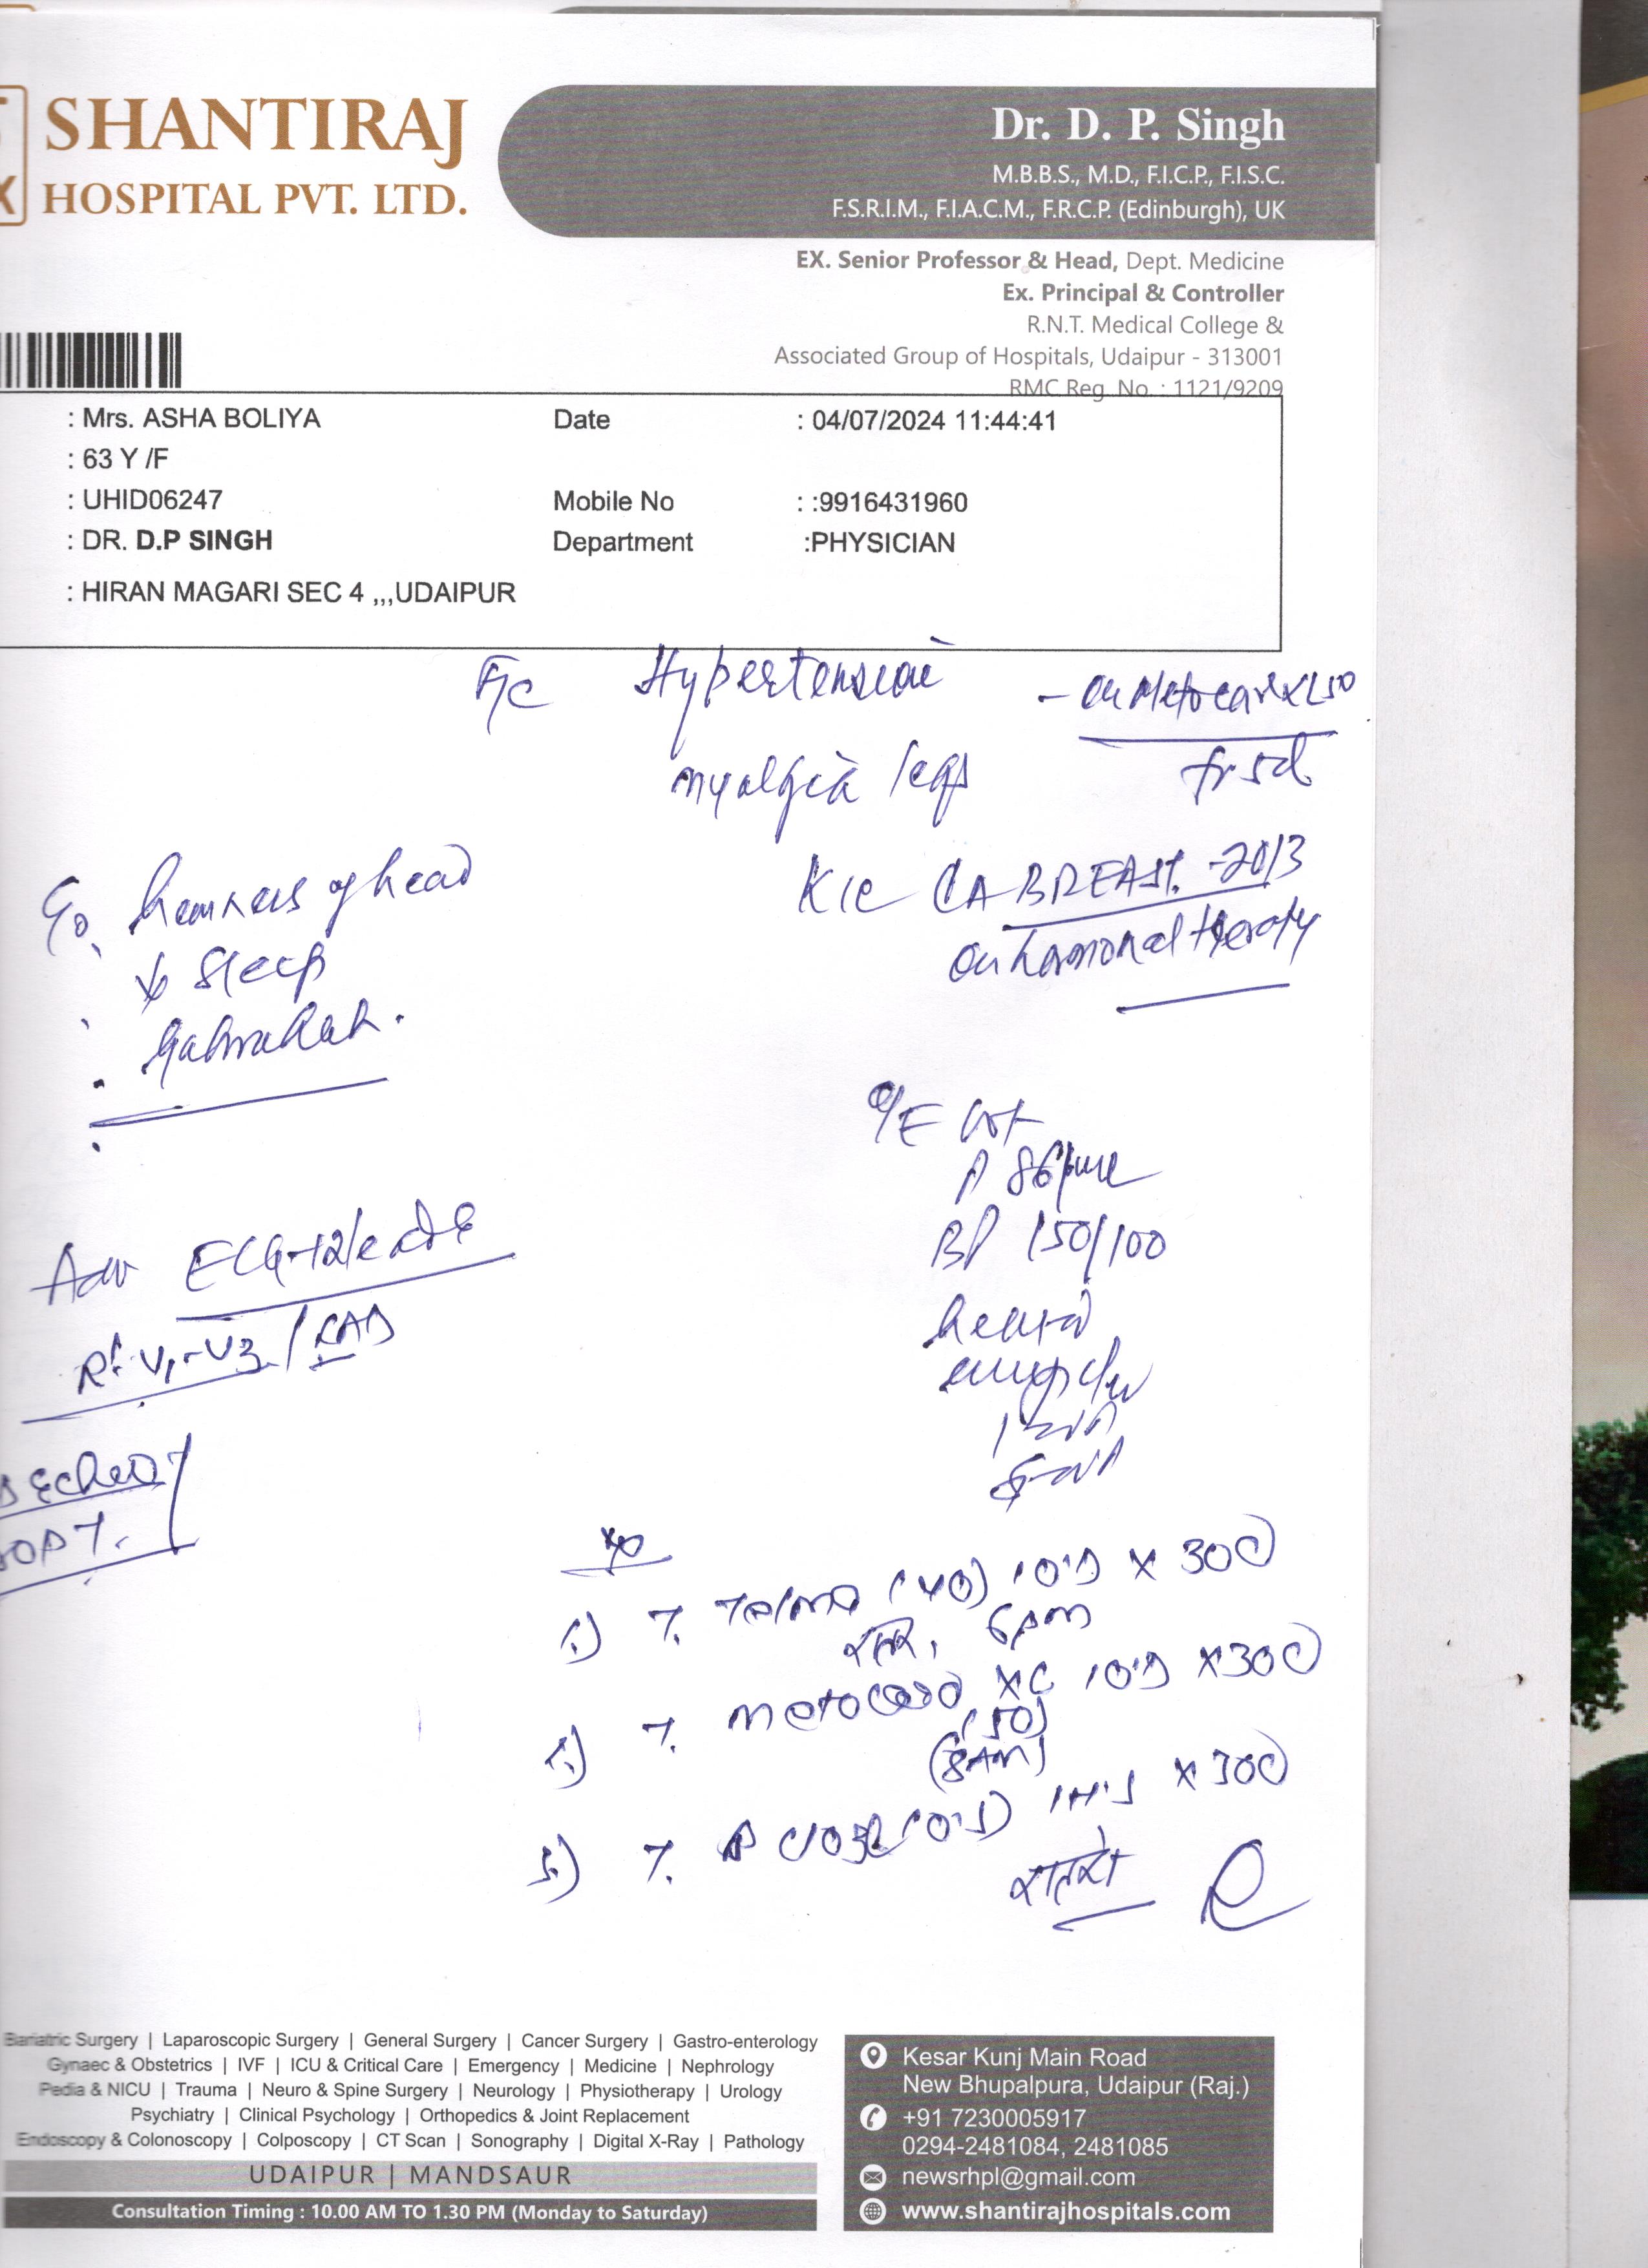 SHANTIRAJ
HOSPITAL PVT. LTD.
Dr. D. P. Singh
M.B.B.S., M.D., F.I.C.P., F.I.S.C.
F.S.R.I.M., F.I.A.C.M., F.R.C.P. (Edinburgh), UK
EX. Senior Professor & Head, Dept. Medicine
Ex. Principal & Controller
R.N.T. Medical College &
Associated Group of Hospitals, Udaipur - 313001
RMC Reg. No. : 1121/9209
: Mrs. ASHA BOLIYA Date : 04/07/2024 11:44:41
: 63 Y /F
: UHID06247 Mobile No : :9916431960
: DR. D.P SINGH Department :PHYSICIAN
: HIRAN MAGARI SEC 4 ,,,UDAIPUR
F/c Hypertension - On Metocard XL 50
myalgia legs
K/c CA BREAST - 2013
On hormonal therapy
C/o heaviness of head
↓ Sleep
Gabrahat.
O/E
P 86/min
BP 150/100
Adv ECG-12 leads
V1-V3
Echo
1) T. Telma (40) 1 OD x 30
6AM
2) T. Metocard XL 1 OD x 30
(50)
(8AM)
3) T. 1 HS x 30
Bariatric Surgery | Laparoscopic Surgery | General Surgery | Cancer Surgery | Gastro-enterology
Gynaec & Obstetrics | IVF | ICU & Critical Care | Emergency | Medicine | Nephrology
Pedia & NICU | Trauma | Neuro & Spine Surgery | Neurology | Physiotherapy | Urology
Psychiatry | Clinical Psychology | Orthopedics & Joint Replacement
Endoscopy & Colonoscopy | Colposcopy | CT Scan | Sonography | Digital X-Ray | Pathology
UDAIPUR | MANDSAUR
Consultation Timing : 10.00 AM TO 1.30 PM (Monday to Saturday)
Kesar Kunj Main Road
New Bhupalpura, Udaipur (Raj.)
+91 7230005917
0294-2481084, 2481085
newsrhpl@gmail.com
www.shantirajhospitals.com